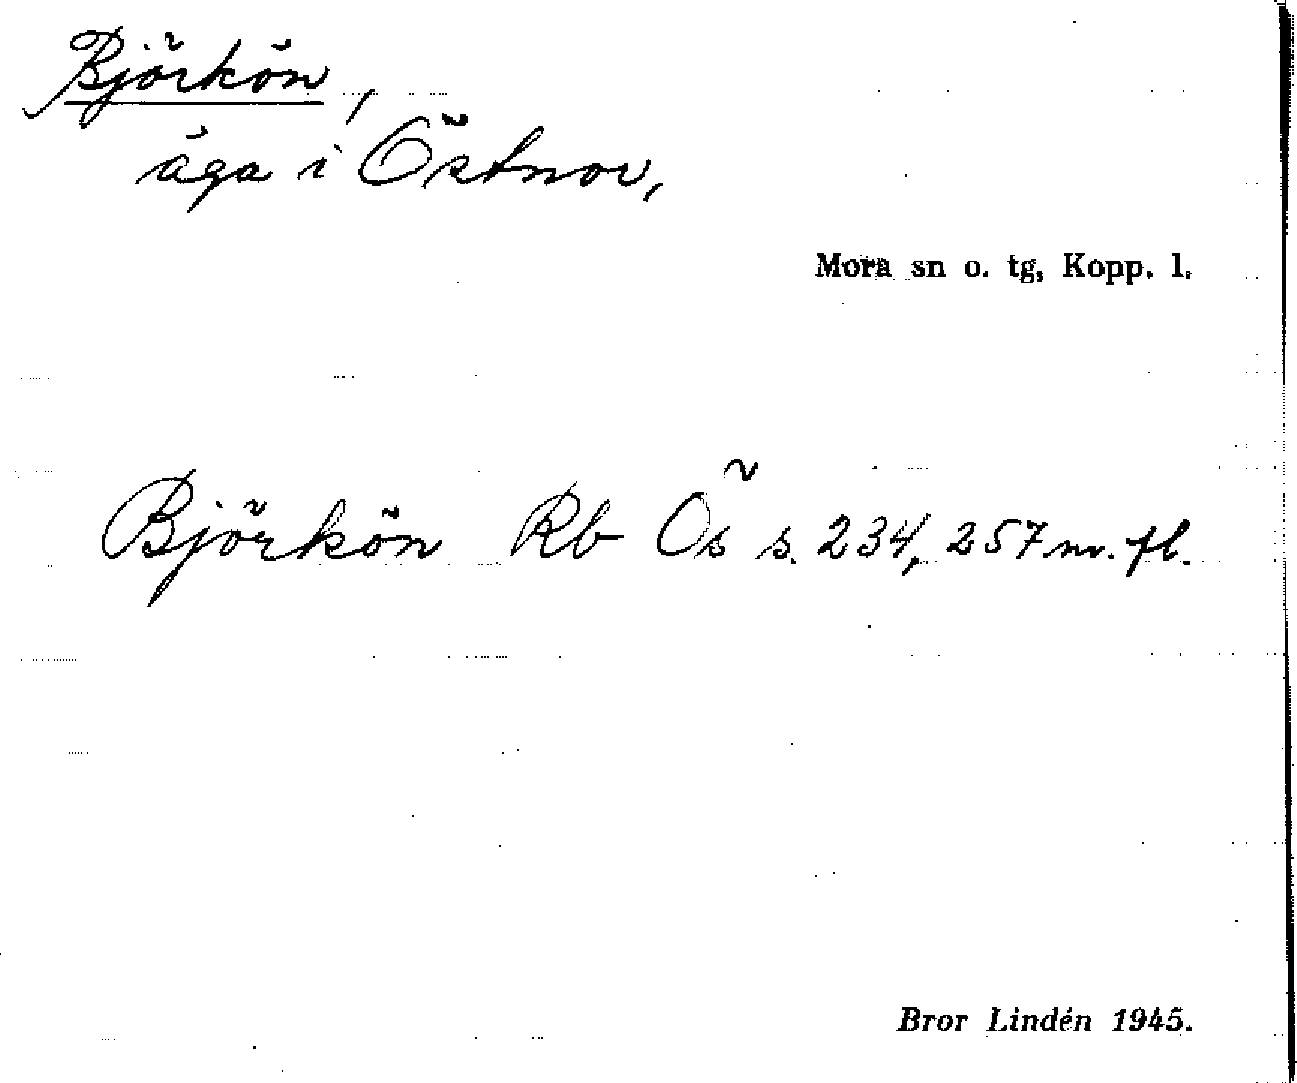 Björkön,
äga i Östnor,
Mora sn o. tg, Kopp. l.
Björkön Rb Ös s. 234, 257 m. fl.
Bror Lindén 1945.